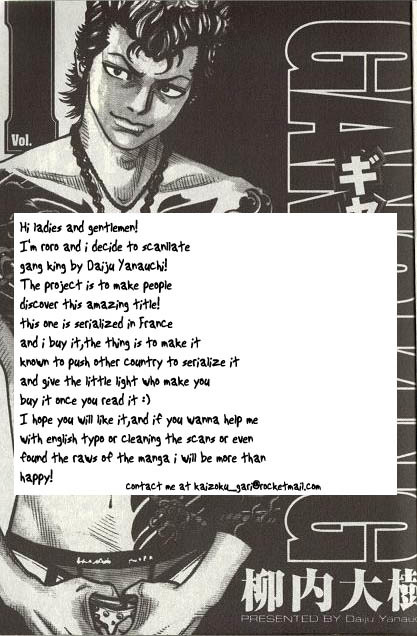 Vol.
GANG KING
ギャ
Hi ladies and gentlemen!
I'm roro and i decide to scanllate
gang king by Daiju Yanauchi!
The project is to make people
discover this amazing title!
this one is serialized in France
and i buy it,the thing is to make it
known to push other country to serialize it
and give the little light who make you
buy it once you read it :)
I hope you will like it,and if you wanna help me
with english typo or cleaning the scans or even
found the raws of the manga i will be more than
happy!
contact me at kaizoku_gari@rocketmail.com
柳内大樹
PRESENTED BY Daiju Yanau